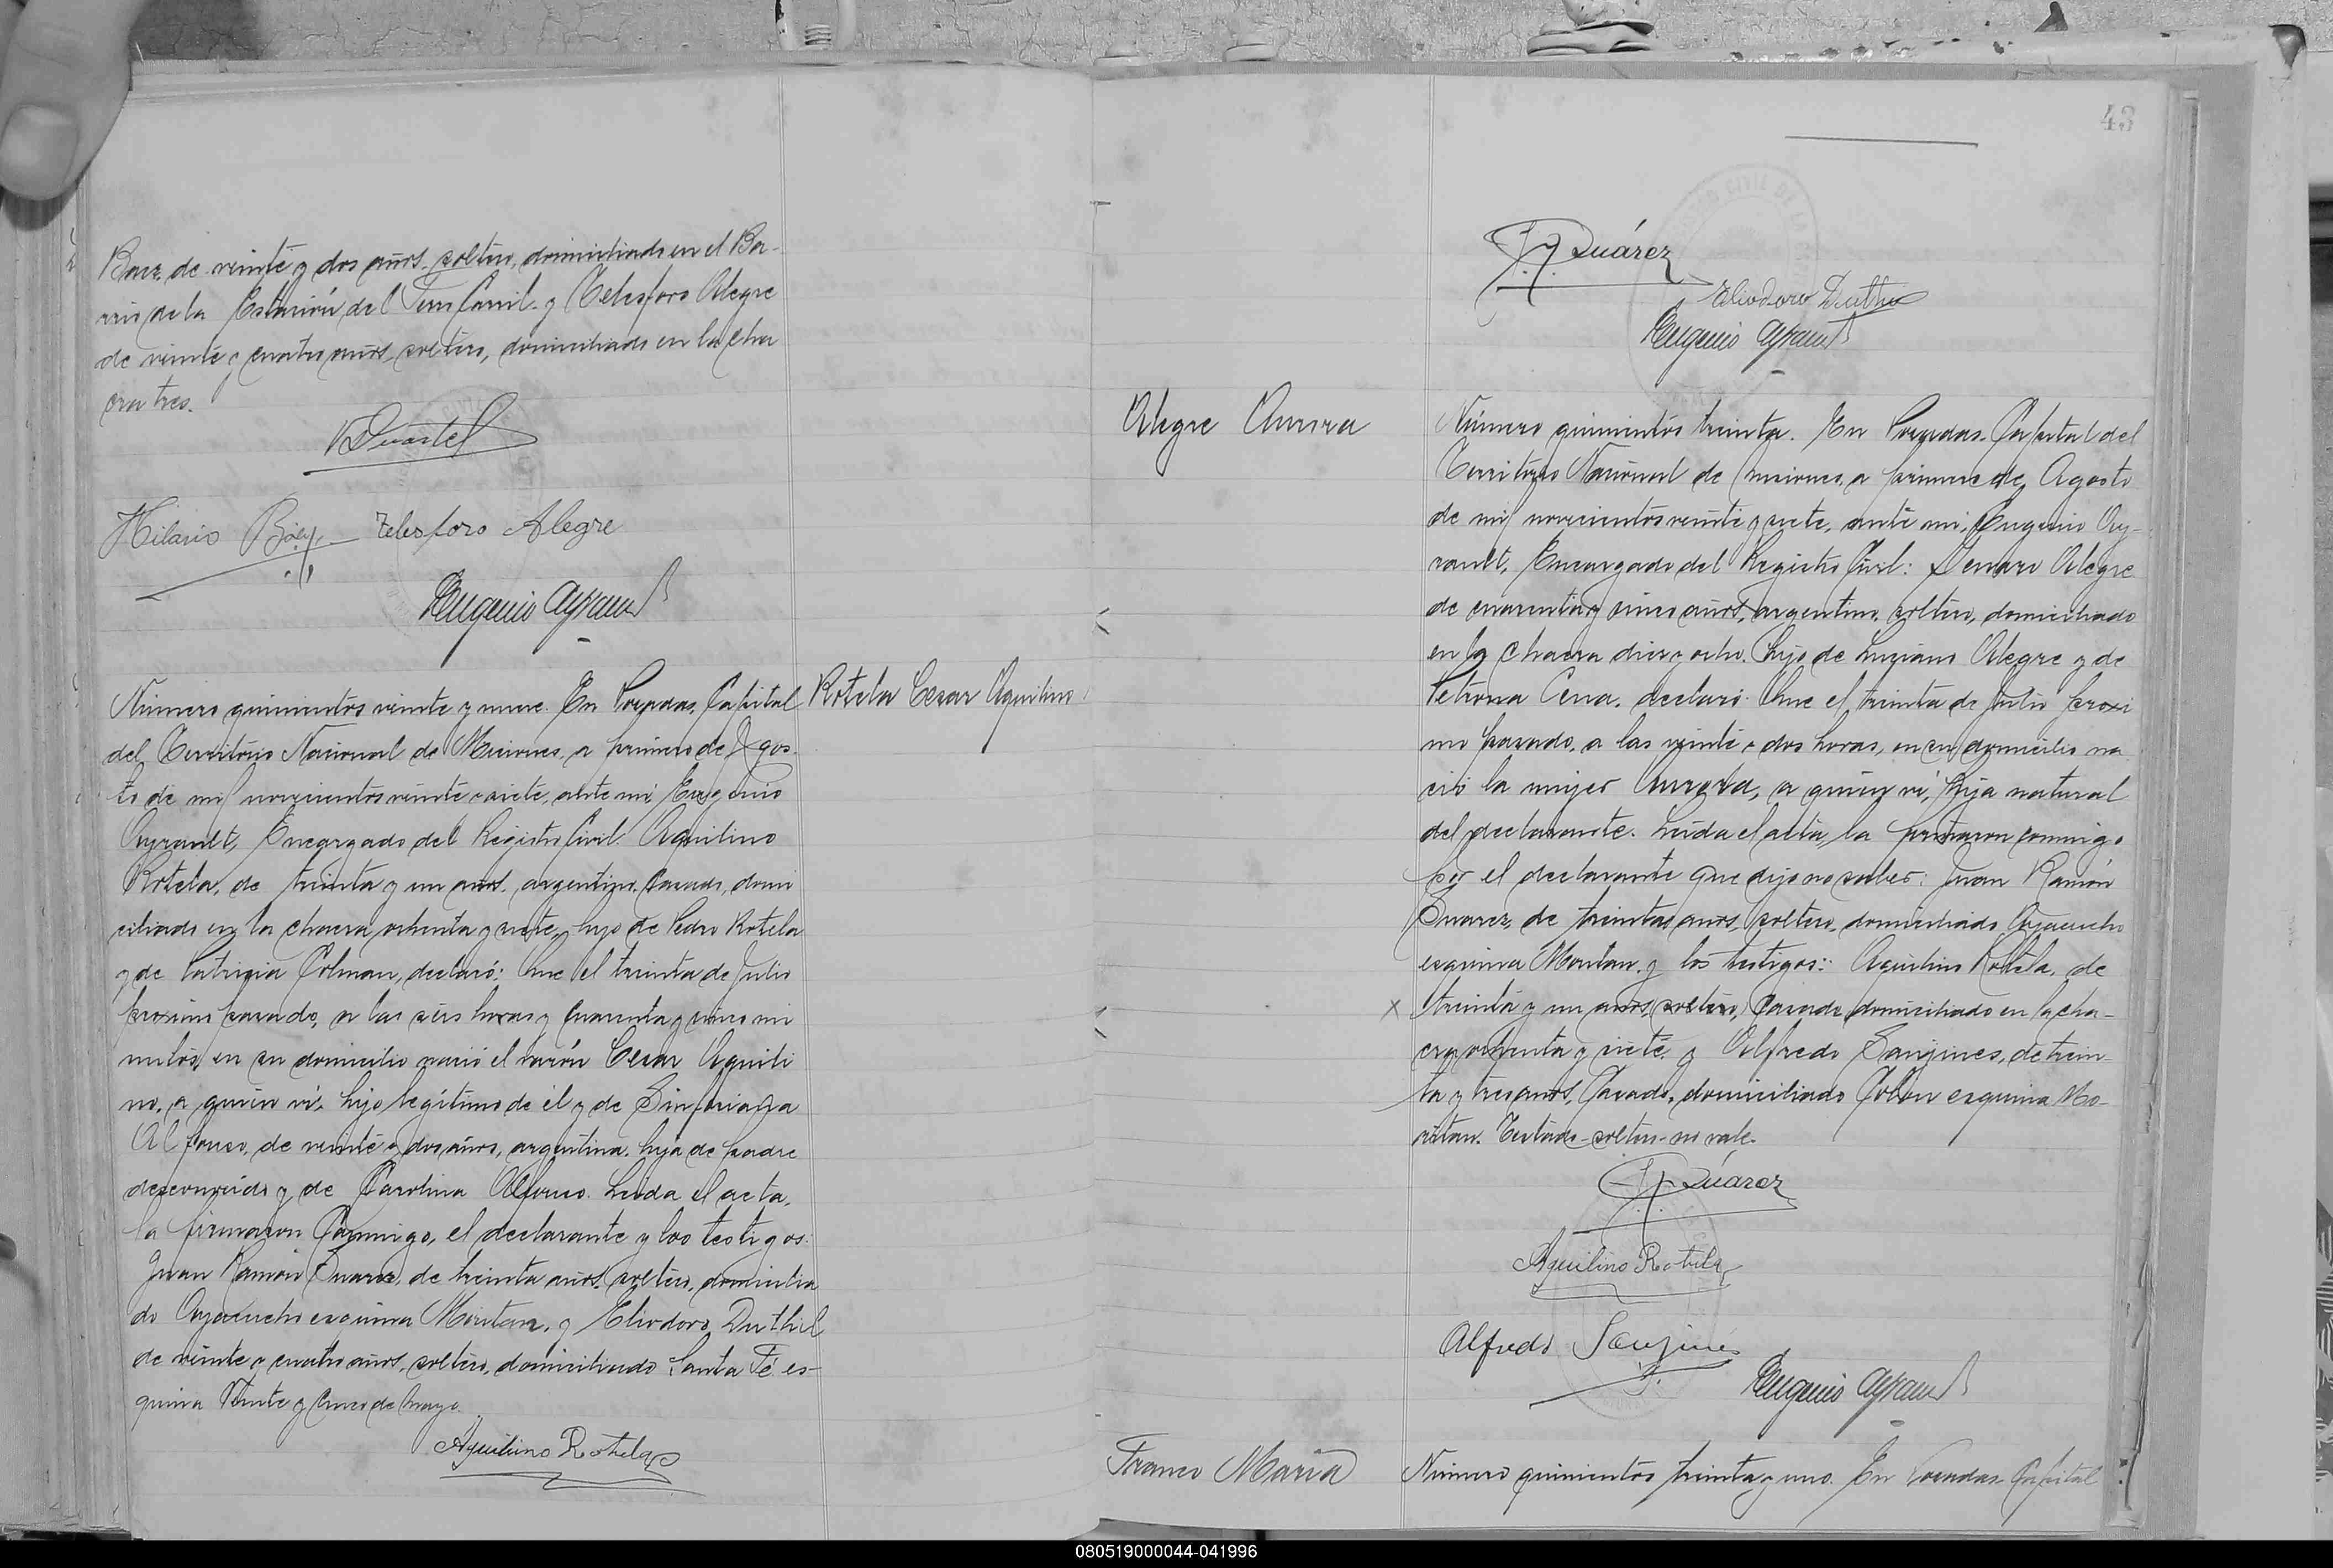 Baez, de veinte y dos años, soltero, domiciliado en el Ba-
rrio de la Estación del Ferro Carril y Telesforo Alegre
de veinte y cuatro años, soltero, domiciliado en la cha
cra tres.
Hilario Baez Telesforo Alegre
Eugenio Ayrault
Número quinientos veinte y nueve. En Posadas, Capital
Rotela Cesar Aquilino
del Territorio Nacional de Misiones, a primero de Agos-
to de mil novecientos veinte y siete, ante mi Eugenio
Ayrault, Encargado del Registro Civil: Aquilino
Rotela, de treinta y un años, argentino, casado, domi
ciliado en la chacra ochenta y siete, hijo de Pedro Rotela
y de Patricia Colman, declaró: Que el treinta de Julio
proximo pasado, a las seis horas y cuarenta y cinco mi
nutos, en su domicilio nació el varón Cesar Aquili
no, a quien vi, hijo legítimo de él y de Sinforiana
Alfonso, de veinte y dos años, argentina, hija de padre
desconocido y de Carolina Alfonso. Leida el acta,
la firmaron conmigo, el declarante y los testigos:
Juan Ramón Suarez, de treinta años, soltero, domicilia
do Ayacucho esquina Moritan, y Eliodoro Duthil
de veinte y cuatro años, soltero, domiciliado Santa Fé es-
quina Veinte y Cinco de Mayo.
Aquilino Rotela
43
Suárez
Eliodoro Duthil
Eugenio Ayrault
Alegre Aurora
Número quinientos treinta. En Posadas, Capital del
Territorio Nacional de Misiones, a primero de Agosto
de mil novecientos veinte y siete, ante mi, Eugenio Ay-
rault, Encargado del Registro Civil: Genaro Alegre
de cuarenta y cinco años, argentino, soltero, domiciliado
en la chacra diez y ocho, hijo de Luciano Alegre y de
Petrona Cena, declaró: Que el treinta de Julio proxi
mo pasado, a las veinte y dos horas, en su domicilio na
ció la mujer Aurora, a quien vi, hija natural
del declarante. Leida el acta, la firmaron conmigo
por el declarante que dijo no saber: Juan Ramón
Suarez, de treinta años, soltero, domiciliado Ayacucho
esquina Moritan, y los testigos: Aquilino Rotela, de
x treinta y un años, soltero, casado, domiciliado en la cha-
cra ochenta y siete, y Alfredo Sanjines, de trein-
ta y tres años, casado, domiciliado Colon esquina Mo-
ritan. Testado-soltero-no vale.
Suárez
Aquilino Rotela
Alfredo Sanjines
Eugenio Ayrault
Franco María
Número quinientos treinta y uno. En Posadas, Capital
080519000044-041996